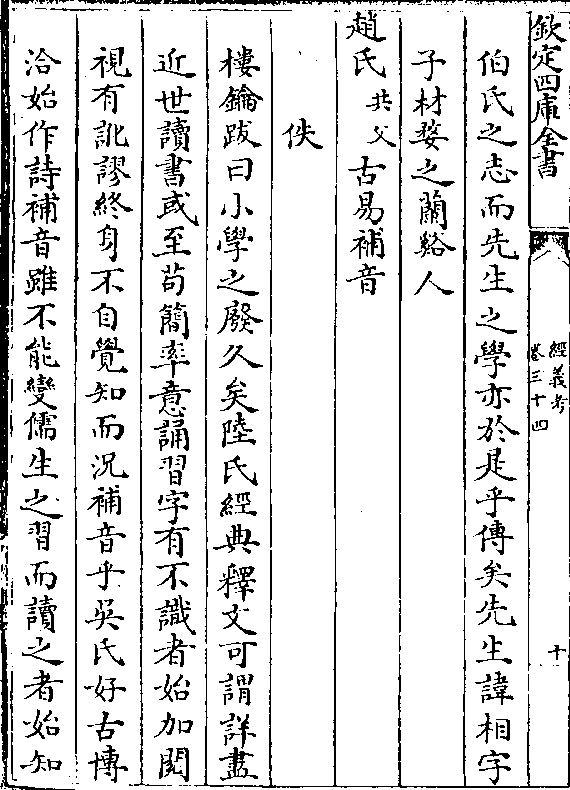 欽定四庫全書
經義考
卷三十四
十
伯氏之志而先生之學亦於是乎傳矣先生諱相字
子材婺之蘭谿人
趙氏共父古易補音
佚
樓鑰跋曰小學之廢久矣陸氏經典釋文可謂詳盡
近世讀書或至苟簡率意誦習字有不識者始加閱
視有訛謬終身不自覺知而況補音乎吳氏好古博
洽始作詩補音雖不能變儒生之習而讀之者始知